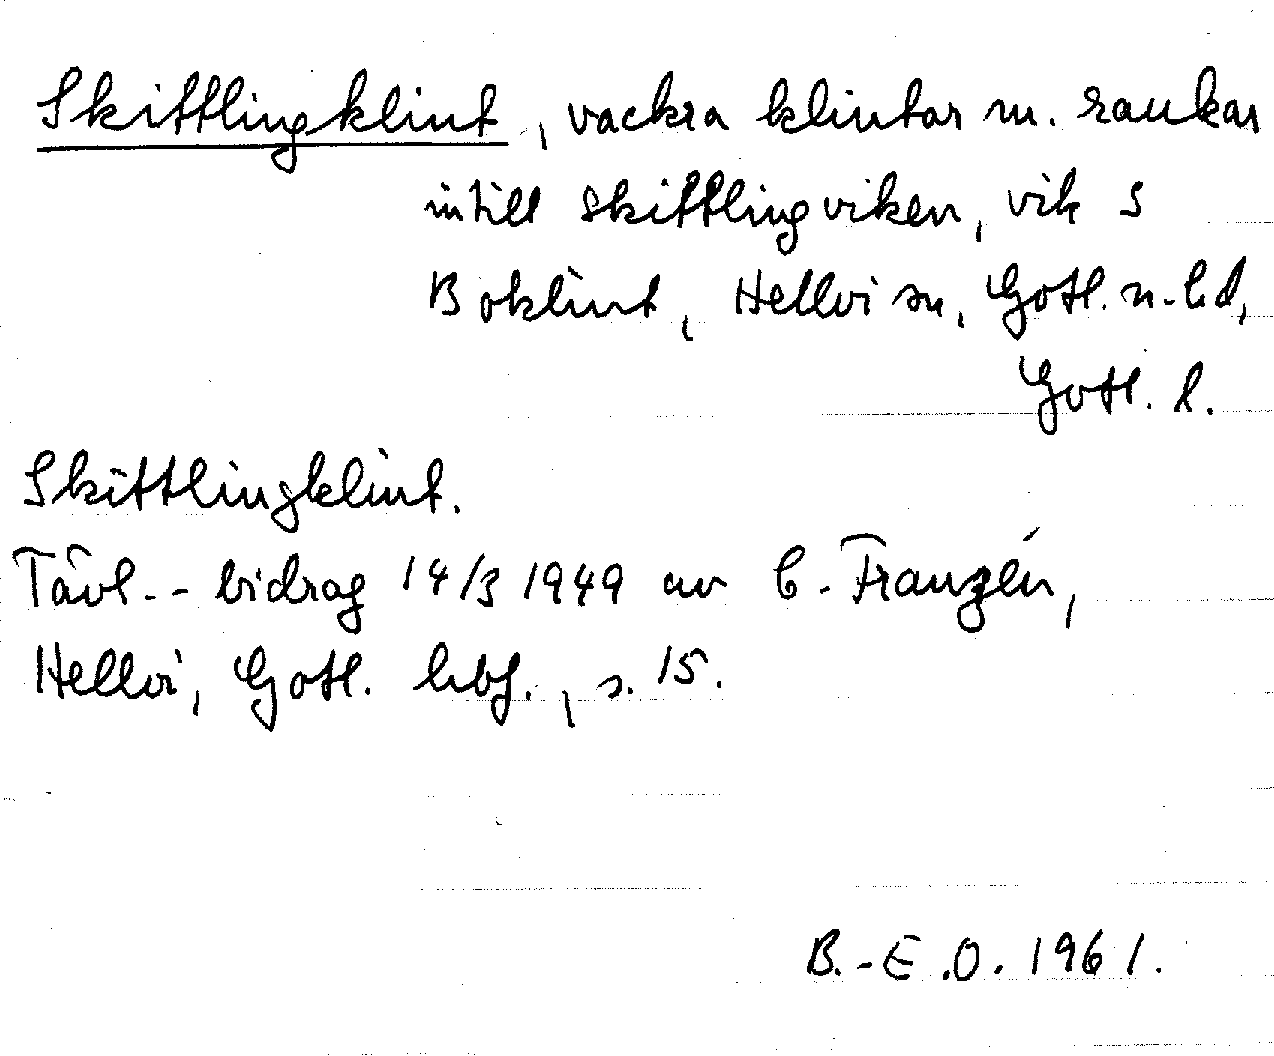 Skittlingklint, vackra klintar m. raukar
intill Skittlingviken, vik S
Boklint, Hellvi sn, Gotl. n. hd,
Gotl. l.
Skittlingklint.
Tävl.-bidrag 14/3 1949 av C. Franzén,
Hellvi, Gotl. hbf., s. 15.
B.-E.O. 1961.